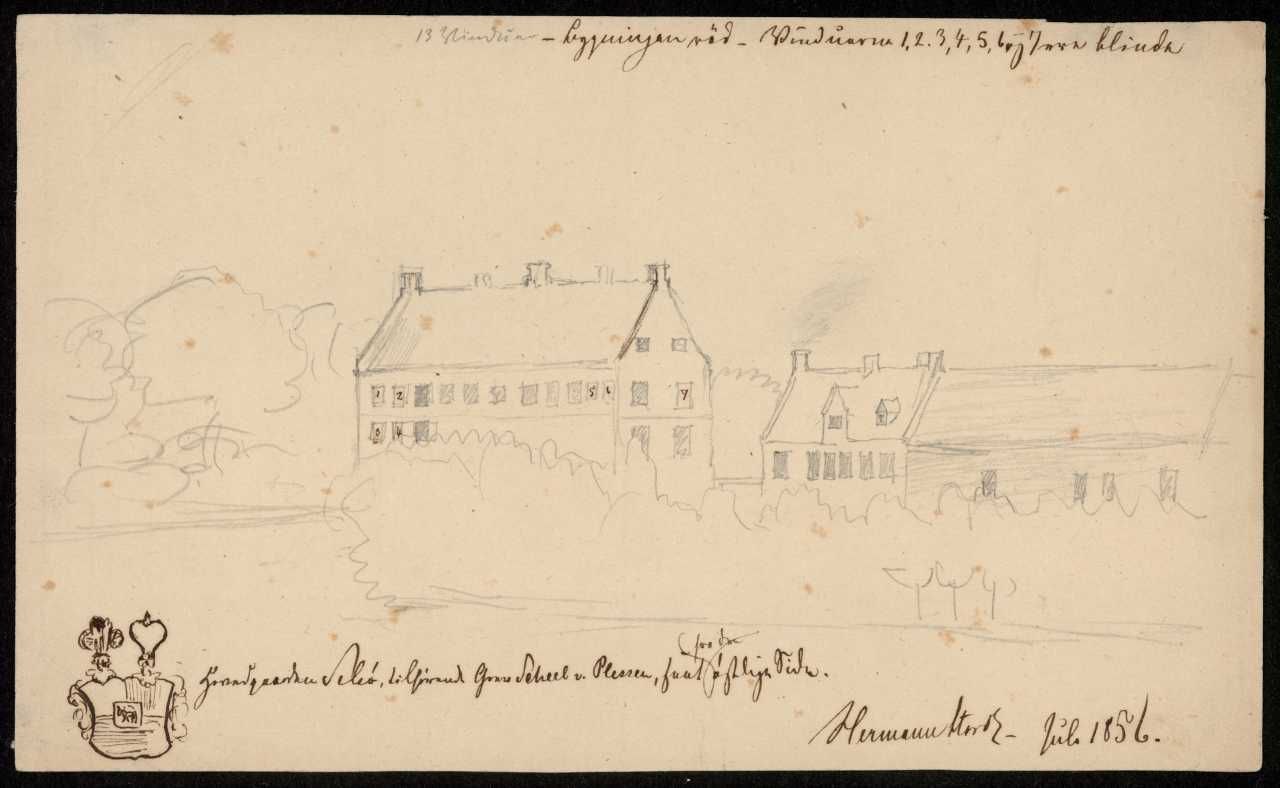 13 Vinduer – Bygningen röd – Vinduerne 1, 2. 3, 4, 5, 6 og 7 ere blinde
1 2 5 6 7
3 4
fra den
Hovedgaarden Selsö, tilhörende Grev Scheel v. Plessen, seet östlige Side.
Hermann Storck – Juli 1856.